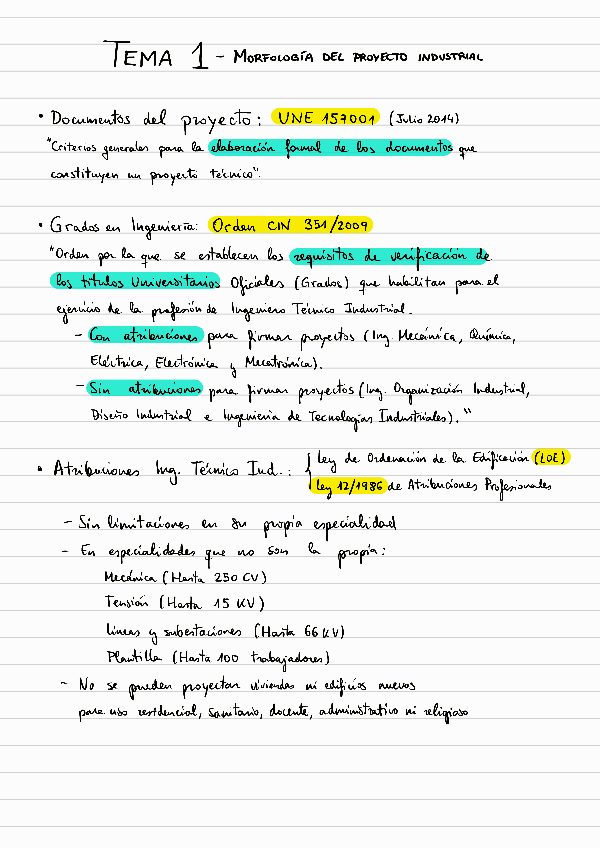 TEMA 1 - MORFOLOGÍA DEL PROYECTO INDUSTRIAL
• Documentos del proyecto: UNE 157001 (Julio 2014)
"Criterios generales para la elaboración formal de los documentos que
constituyen un proyecto técnico".
• Grados en Ingeniería: Orden CIN 351/2009
"Orden por la que se establecen los requisitos de verificación de
los títulos Universitarios Oficiales (Grados) que habilitan para el
ejercicio de la profesión de Ingeniero Técnico Industrial.
- Con atribuciones para firmar proyectos (Ing. Mecánica, Química,
Eléctrica, Electrónica y Mecatrónica).
- Sin atribuciones para firmar proyectos (Ing. Organización Industrial,
Diseño Industrial e Ingeniería de Tecnologías Industriales)."
• Atribuciones Ing. Técnico Ind.: { Ley de Ordenación de la Edificación (LOE)
Ley 12/1986 de Atribuciones Profesionales
- Sin limitaciones en su propia especialidad
- En especialidades que no son la propia:
Mecánica (Hasta 250 CV)
Tensión (Hasta 15 KV)
Líneas y subestaciones (Hasta 66 KV)
Plantilla (Hasta 100 trabajadores)
- No se pueden proyectar viviendas ni edificios nuevos
para uso residencial, sanitario, docente, administrativo ni religioso